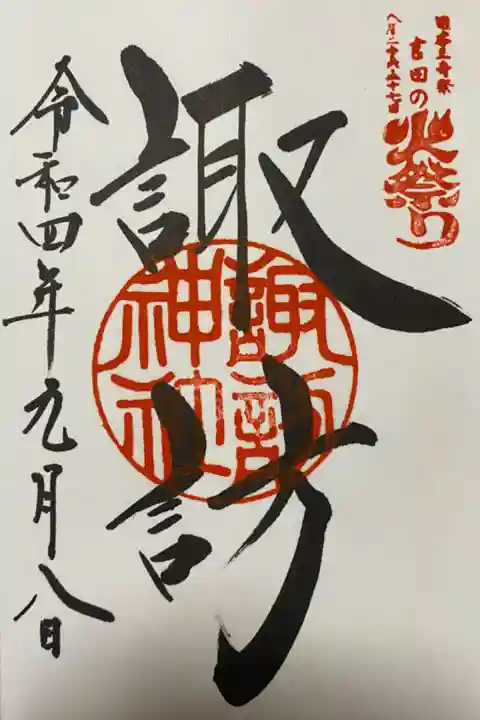 日本三奇祭
吉田の
火祭り
八月二十六二十七日
諏訪
諏訪
神社
令和四年九月八日